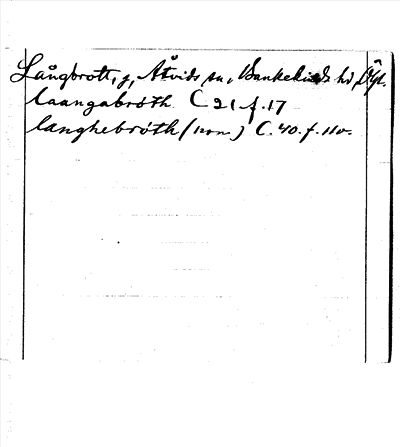 Långbrott, g, Åtvids sn, Bankekinds hd, Ögl.
laangabröth C 21 f. 17
langhebröth (nom.) C. 40. f. 11 v.